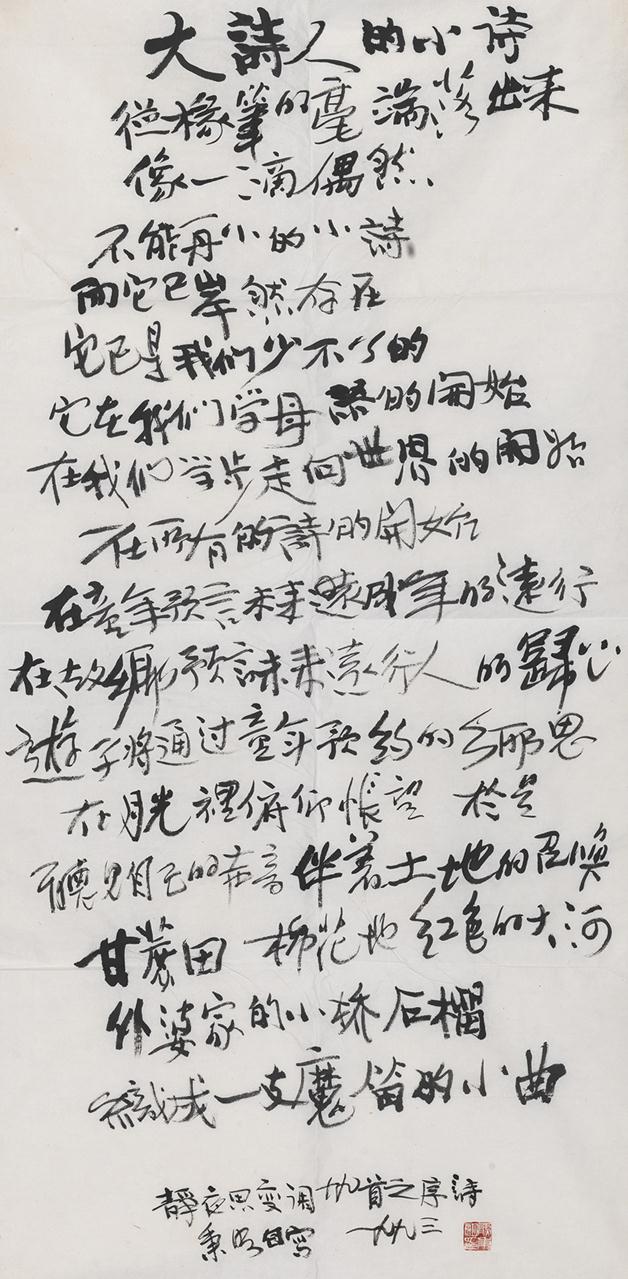 大詩人的小诗
從椽筆的毫端落出来
像一滴偶然
不能再小的小詩
而它已岸然存在
它已是我们少不了的
它在我们学母語的開始
在我们学步走向世界的開始
在所有的詩的開始
在童年预言未来遠成年的遠行
在故鄉预言未来遠行人的歸心
遊子将通过童年预约的鄉思
在月光裡俯仰悵望 於是
聽見自己的音伴着土地的召唤
甘蔗田 棉花地 红色的大河
外婆家的小桥石榴
織成一支魔笛的小曲
靜夜思变调廿九首之序詩
秉明自写 一九九三